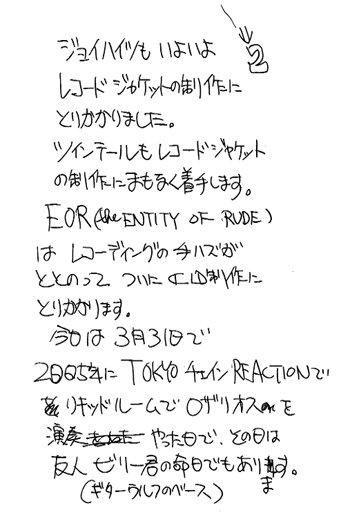 2
ジョイハイツも いよいよ
レコード ジャケットの制作に
とりかかりました。
ツインテールも レコードジャケット
の制作にまもなく着手します。
EOR(the ENTITY OF RUDE)
は レコーディングの手ハズが
ととのって ついに CD制作に
とりかかります。
今日は 3月31日で
2005年に TOKYO チェイン REACTIONで
リキッドルームで ロザリオスを
演奏 やった日で、その日は
友人 ビリー君の命日でもあります。
(ギターウルフのベース)